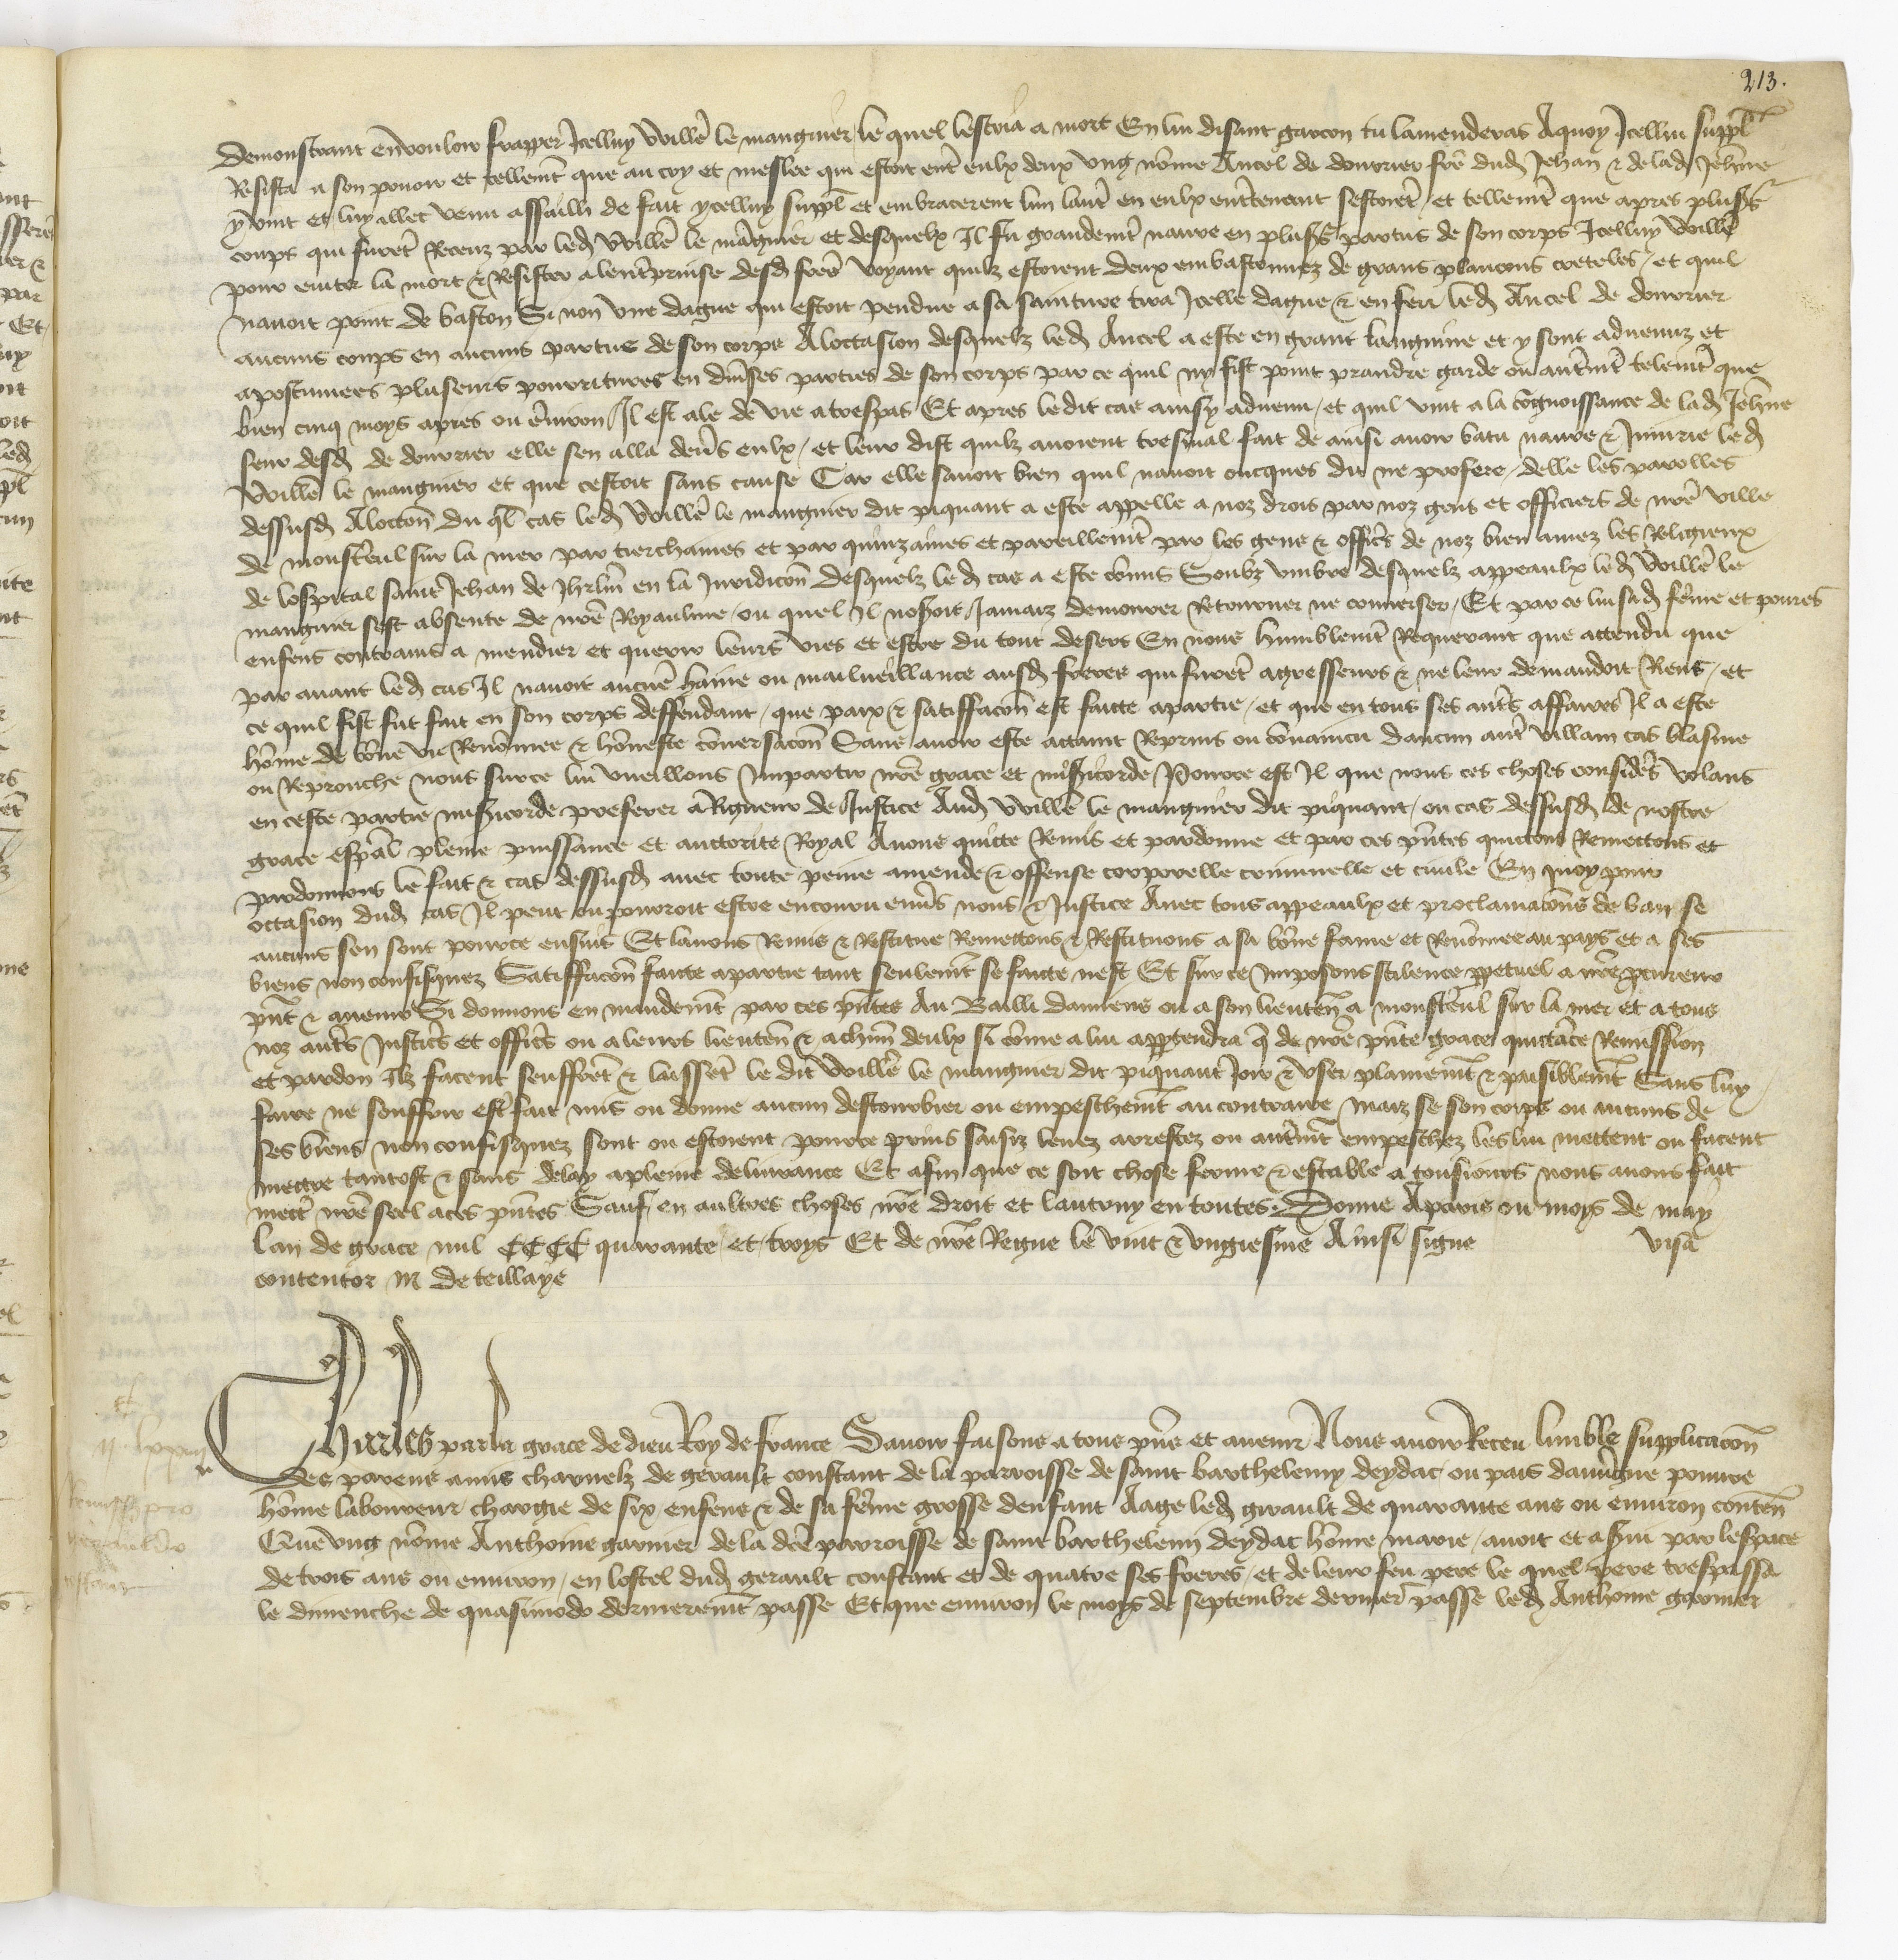 213.
demonstrant en vouloir frapper Icelluy Willē le mangnier / le quel lescria a mort En lui disant garcon tu lamenderas Aquoy Icellui suppl̄
Resista a son pouoir et tellemt̄ que au cry et meslee qui estoit entr̄ eulx deux ung nōme Ancel de dourrier frē dud̄ Jehan ⁊ de lad̄ Jehn̄e
y vint et luy allec venu assailli de fait ycelluy suppl̄ et embracerent lun lautr̄ en eulx entretenant sestoiēt / et tellemt̄ que apres plus̄s
coups qui furet̄ Receuz par led̄ Willē le māgnier et desquelx Il fu grandemt̄ naure en plus̄s parties de son corps Icelluy Willē
pour euiter la mort ⁊ Resister a lentr̄prinse desd̄ freres voyant quilz estoient deux embastonnez de grans plancons creteles / et quil
nauoit point de baston Si non vne dague qui estoit pendue a sa sainture tira Icelle dague ⁊ en feri led̄ Ancel de dourrier
aucuns coups en aucuns parties de son corps A loccasion desquelz led̄ Ancel a este en grant langueur et y sont aduenuz et
apostumees pluseurs pourritures en diūses parties de son corps par ce quil ny fist point prandre garde ou autr̄mt̄ telemt̄ que
bien cinq moys apres ou ēuiron / Il est ale de vie a trespas Et apres le dit cas ainsy aduenu / et quil vint a la cōgnoissance de lad̄ Jehn̄e
seur desd̄ de dourrier elle sen alla deūs eulx / et leur dist quilz auoient tresmal fait de ainsi auoir batu naure ⁊ Iniurie led̄
Willē le mangnier et que cestoit sans cause Car elle sauoit bien quil nauoit oncques dit ne profere / delle les parolles
dessusd̄ A loccōn du ql̄ cas led̄ Willē le mangnier dit piquant a este appelle a noz drois par noz gens et officiers de nr̄e ville
de monster̄ul sur la mer par tierchaines et par quinzaines et pareillemt̄ par les gens ⁊ officr̄s de noz bien amez les Religieux
de lospital saint Jehan de Jhrlm̄ en la Juridicōn desquelz led̄ cas a este cōmis Soubz vmbre desquelz appeaulx led̄ Willē le
mangnier sest absente de nr̄e Royaulme / ou quel Il noseroit Jamaiz demourer retourner ne conuerser / Et par ce lui sad̄ fēme et poures
enfens contrains a mendier et querir leurs vies et estre du tout desers En nous humblemt̄ Requerant que attendu que
par auant led̄ cas Il nauoit aucun̄e haine ou malueillance ausd̄ freres qui furet̄ agresseurs ⁊ ne leur demandoit Riens / et
ce quil fist fut fait en son corps deffendant / que paix ⁊ satiffacōn est faicte a partie / et que en tous ses autr̄s affaires Il a este
hōme de bōne vie Renōmee ⁊ hōneste cōuersacōn Sans auoir este attaint Reprins ou cōuaincu daucun autr̄ villain cas blasme
ou Reprouche nous sur ce lui vueillons Impartir nr̄e grace et mis̄icorde Pour ce est Il que nous ces choses considēs volans
en ceste partie mis̄icorde preferer a Rigueur de Justice Aud̄ Willē le mangnier dit piquant / ou cas dessusd̄ de nostre
grace esp̄al pleine puissance et auctorite Royal Auons quicte Remis et pardonne et par ces pn̄tes quictons Remettons et
pardonnons le fait ⁊ cas dessusd̄ auec toute peine amende ⁊ offense corporelle criminelle et ciuile En quoy pour
occasion dud̄ cas Il peut ou pourroit estre encouru enuers nous ⁊ Justice Auec tous appeaulx et proclamacōns de ban se
aucuns sen sont pource ensuis Et lauons Remis ⁊ Restitue Remettons ⁊ Restituons a sa bōne fame et Renōmee au pays et a ses
biens non confisquez Satiffacōn faicte a partie tant seulemt̄ se faicte nest Et sur ce Imposons silence ppetuel a nr̄e pcureur
pn̄t ⁊ auenir Si donnons en mandemt̄ par ces pn̄tes Au Bailli damiens ou a son lieuten̄ a monster̄ul sur la mer et a tous
noz autr̄s Justicr̄s et officr̄s ou a leurs lieuten̄ ⁊ a chūn deulx si cōme a lui apptendra q̄ de nr̄e pn̄te grace quictāce Remission
et pardon Ilz facent seuffret̄ ⁊ laissēt le dit Willē le mangnier dit piquant Joir ⁊ vser plainemt̄ ⁊ paisiblemt̄ Sans luy
faire ne souffrir estr̄ fait mis ou donne aucun destourbier ou empeschemt̄ au contraire Maiz se son corps ou aucuns de
ses biens non confisquez sont ou estoient pource prins saisiz leuez arrestez ou autr̄mt̄ empeschez les lui mettent ou facent
mettre tantost ⁊ sans delay a pleine deliurance Et afin que ce soit chose ferme ⁊ estable a tousiours nous auons fait
mettr̄ nr̄e seel a ces pn̄tes Sauf en aultres choses nr̄e droit et lautruy en toutes. Donne A paris ou moys de may
lan de grace mil CCCC quarante et troys Et de nr̄e Regne le vint ⁊ vngiesme Ainsi signe visa
contentor M de teillaye
Charles par la grace de dieu Roy de france Sauoir faisons a tous pn̄s et auenir Nous auoir Receu lumble supplicacōn
Des parens amis charnelz de gerault constant de la parroisse de saint barthelemy deydac ou pais dauuīgne poure
hōme laboureur chargie de six enfens ⁊ de sa fēme grosse denfant Aage led̄ girault de quarante ans ou enuiron conten̄
Que vng nōme Anthoine garnier de la dc̄e parroisse de saint barthelemi deydac hōme marie / auoit et a s̄ui par lespace
de trois ans ou enuiron / en lostel dud̄ gerault constant et de quatre ses freres / et de leur feu pere le quel pere trespassa
le dimenche de quasimodo dernieremt̄ passe Et que enuiron le moys de septembre dernier̄ passe led̄ Anthoine garnier